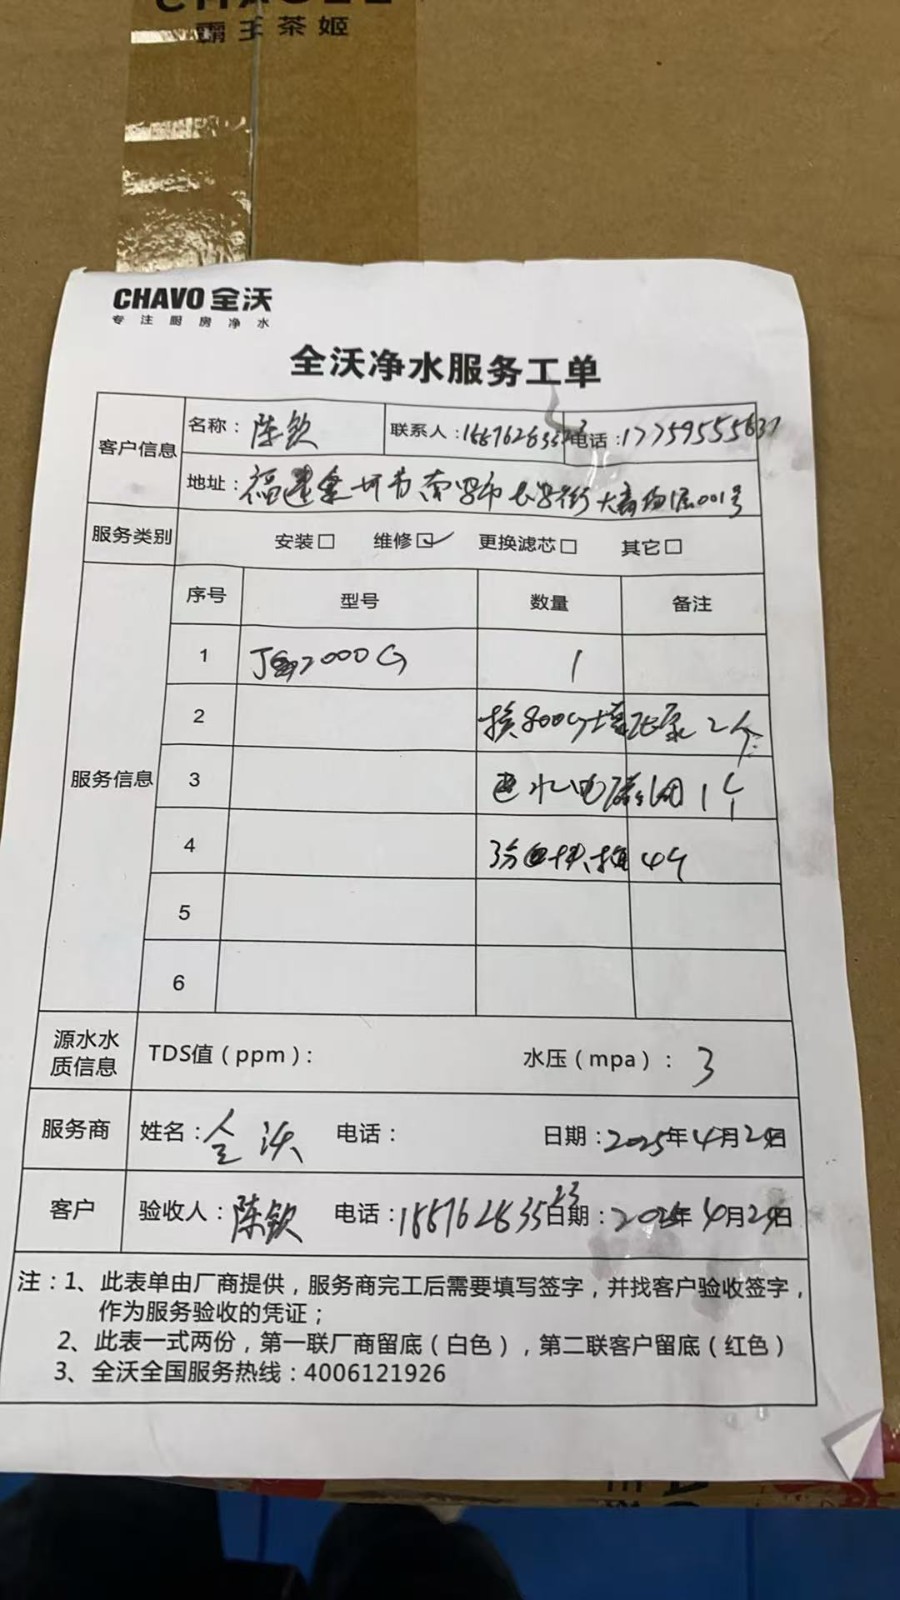 霸王茶姬
CHAVO 全沃
专注厨房净水
全沃净水服务工单
客户信息
名称：陈钦
联系人：
电话：17759555637
地址：福建泉州市南安市
大商场 001号
服务类别
安装□ 维修☑ 更换滤芯□ 其它□
服务信息
序号 型号 数量 备注
1 2000G 1
2 换800G增压泵2个
3 进水电磁阀1个
4 3分 4个
5
6
源水水质信息
TDS值（ppm）： 水压（mpa）：3
服务商
姓名：全沃 电话： 日期：2025年4月 日
客户
验收人：陈钦 电话：18876283523 日期： 年4月 日
注：1、此表单由厂商提供，服务商完工后需要填写签字，并找客户验收签字，
作为服务验收的凭证；
2、此表一式两份，第一联厂商留底（白色），第二联客户留底（红色）
3、全沃全国服务热线：4006121926